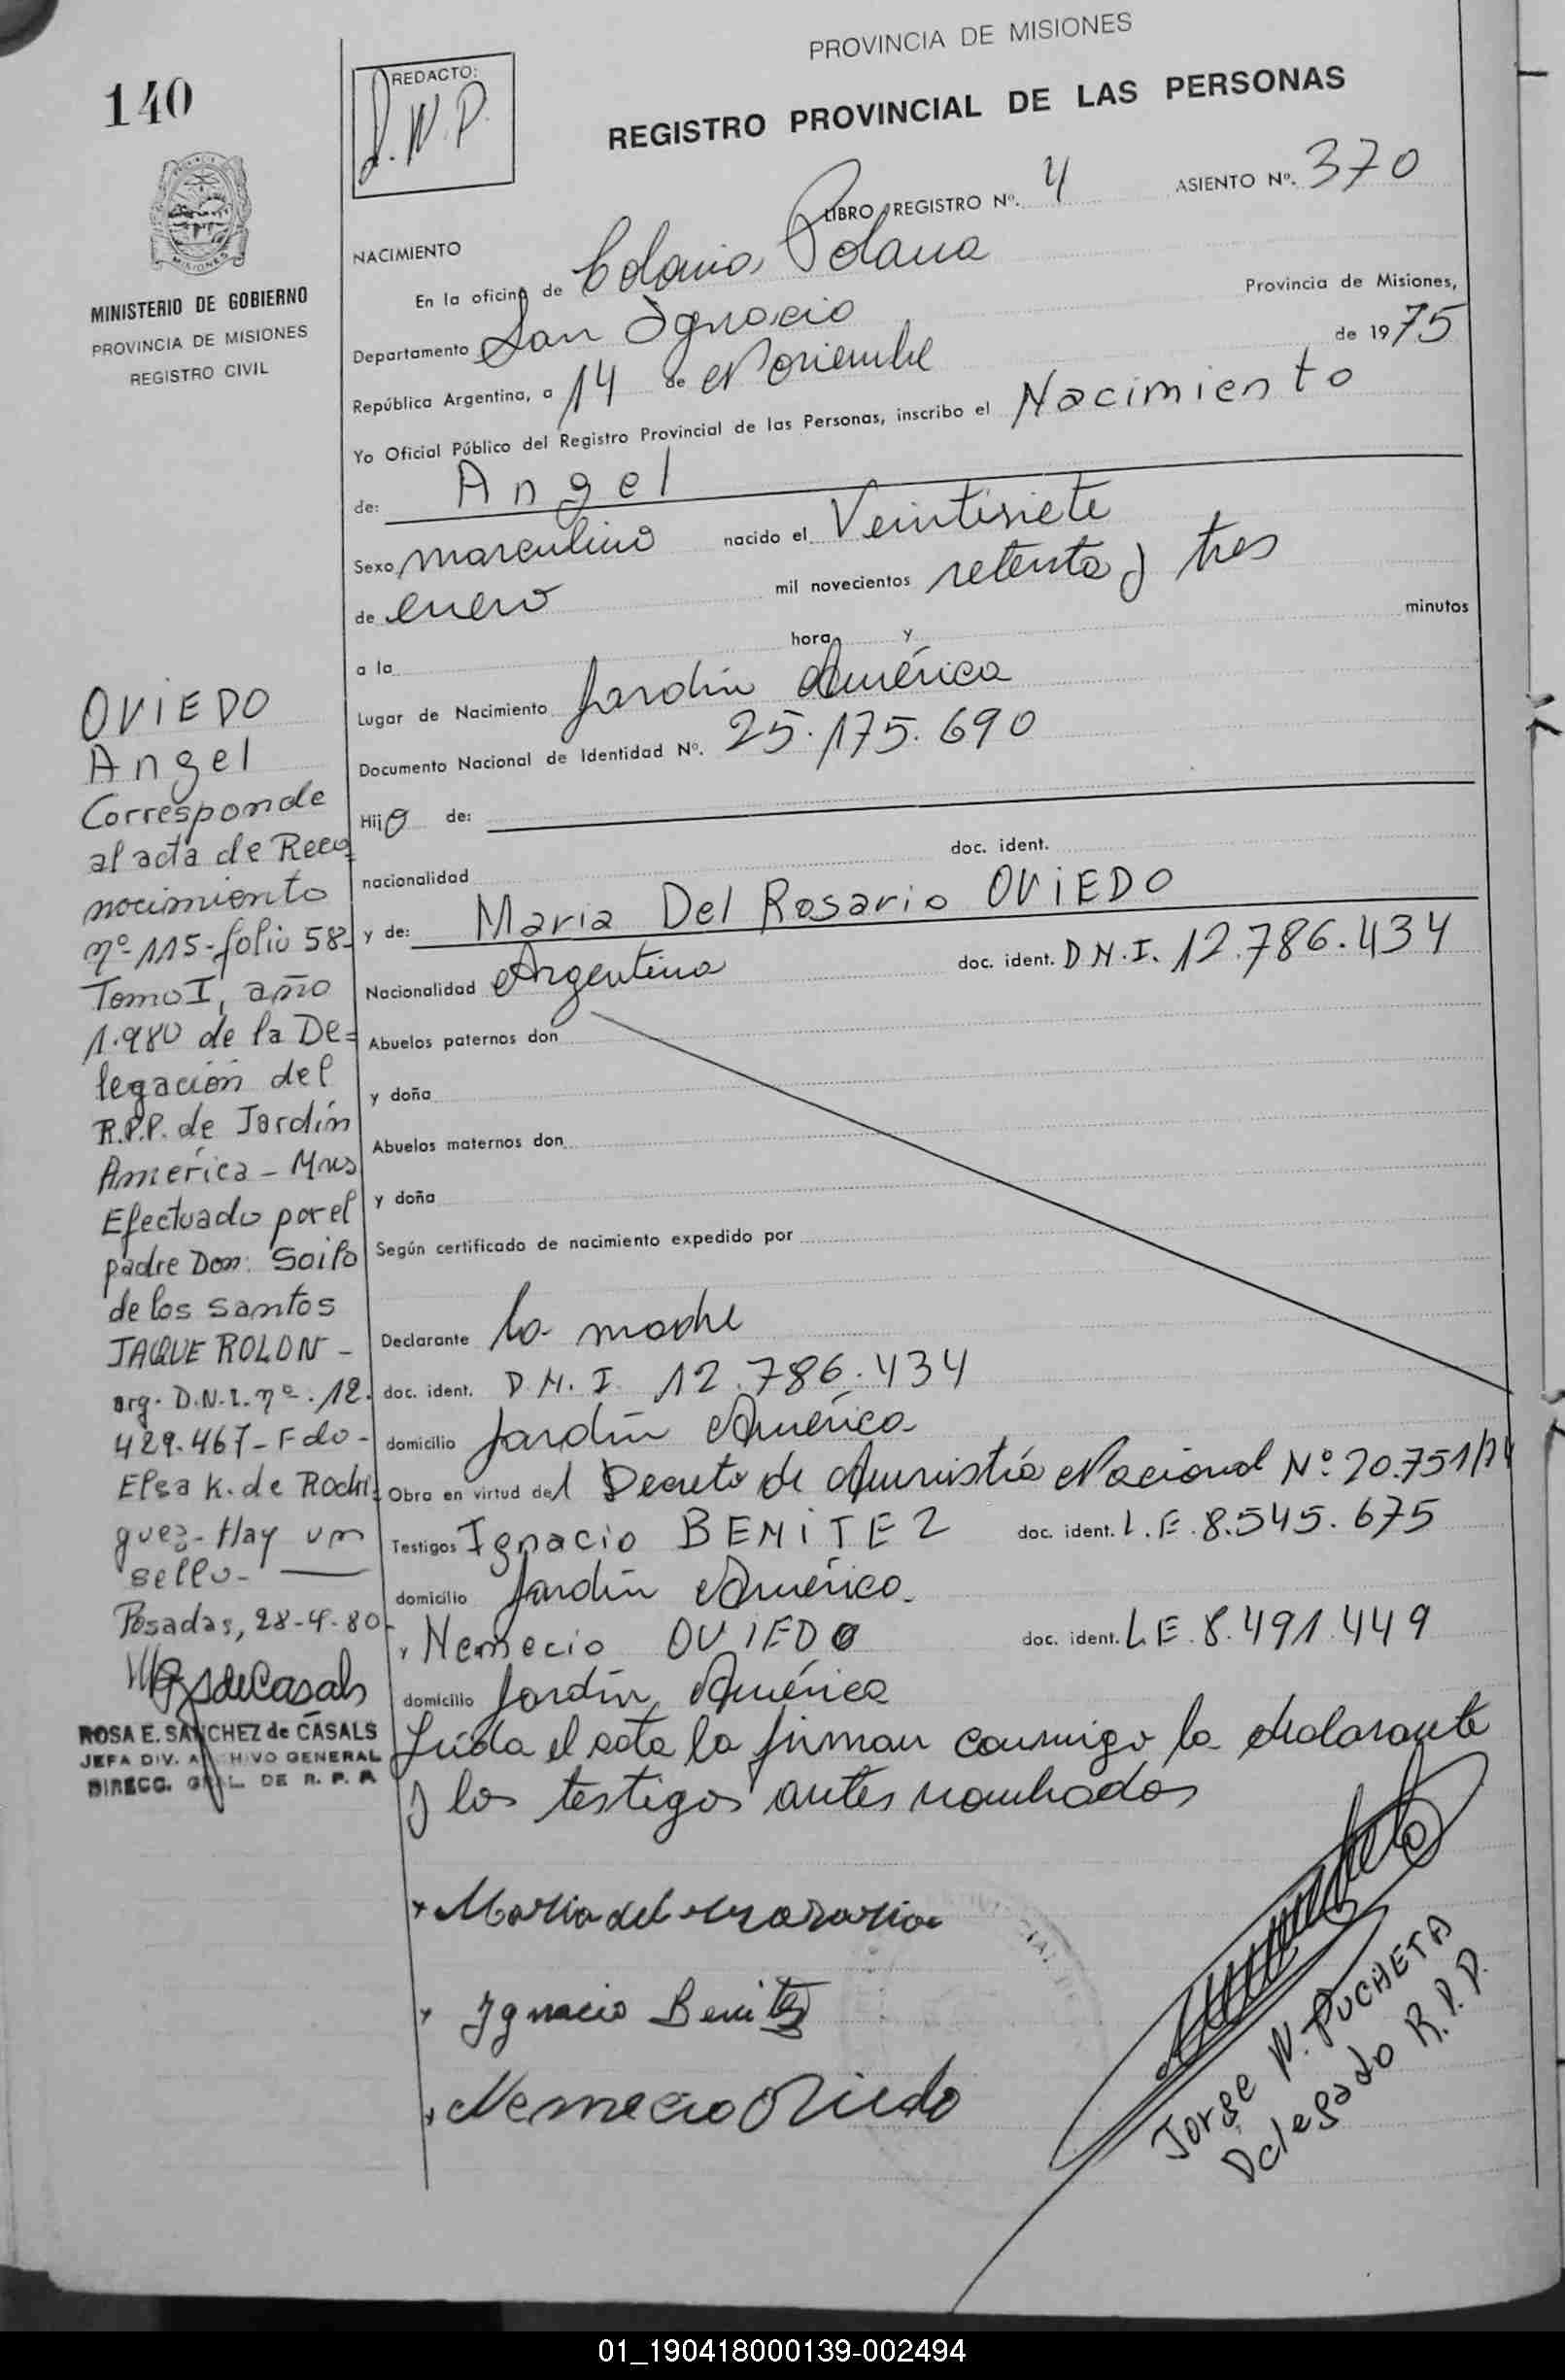 PROVINCIA DE MISIONES
140
REDACTO:
J.N.P.
REGISTRO PROVINCIAL DE LAS PERSONAS
LIBRO REGISTRO Nº. 4 ASIENTO Nº. 370
MISIONES
MINISTERIO DE GOBIERNO
PROVINCIA DE MISIONES
REGISTRO CIVIL
NACIMIENTO
En la oficina de Colonia Polana Provincia de Misiones,
Departamento San Ignacio
República Argentina, a 14 de Noviembre de 1975
Yo Oficial Público del Registro Provincial de las Personas, inscribo el Nacimiento
de: Angel
Sexo masculino nacido el Veintisiete
de enero mil novecientos setenta y tres
a la hora y minutos
Lugar de Nacimiento Jardín América
Documento Nacional de Identidad Nº. 25.175.690
Hijo de:
nacionalidad doc. ident.
y de: Maria Del Rosario OVIEDO
Nacionalidad Argentina doc. ident. D.N.I. 12.786.434
Abuelos paternos don
y doña
Abuelos maternos don
y doña
Según certificado de nacimiento expedido por
Declarante la madre
doc. ident. D.N.I. 12.786.434
domicilio Jardín América
Obra en virtud del Decreto de Amnistía Nacional Nº 20.751/74
Testigos Ignacio BENITEZ doc. ident. L.E. 8.545.675
domicilio Jardín América.
y Nemecio OVIEDO doc. ident. L.E. 8.491.449
domicilio Jardín América
Leída el acta la firman conmigo la declarante
y los testigos antes nombrados
OVIEDO
Angel
Corresponde
al acta de Reco=
nocimiento
nº 115-folio 58-
Tomo I, año
1.980 de la De=
legación del
R.P.P. de Jardín
América - Mnes
Efectuado por el
padre Don: Soilo
de los Santos
JAQUE ROLON -
arg. D.N.I. nº. 12.
429.467 - Fdo -
Elsa K. de Rodri=
guez - Hay un
sello -
Posadas, 28-4-80-
ROSA E. SANCHEZ de CASALS
JEFA DIV. ARCHIVO GENERAL
DIRECC. GRAL. DE R. P. P.
x Maria del rosario
x Ignacio Benitez
x Nemecio Oviedo
Jorge N. PUCHETA
Delegado R.P.P.
01_190418000139-002494